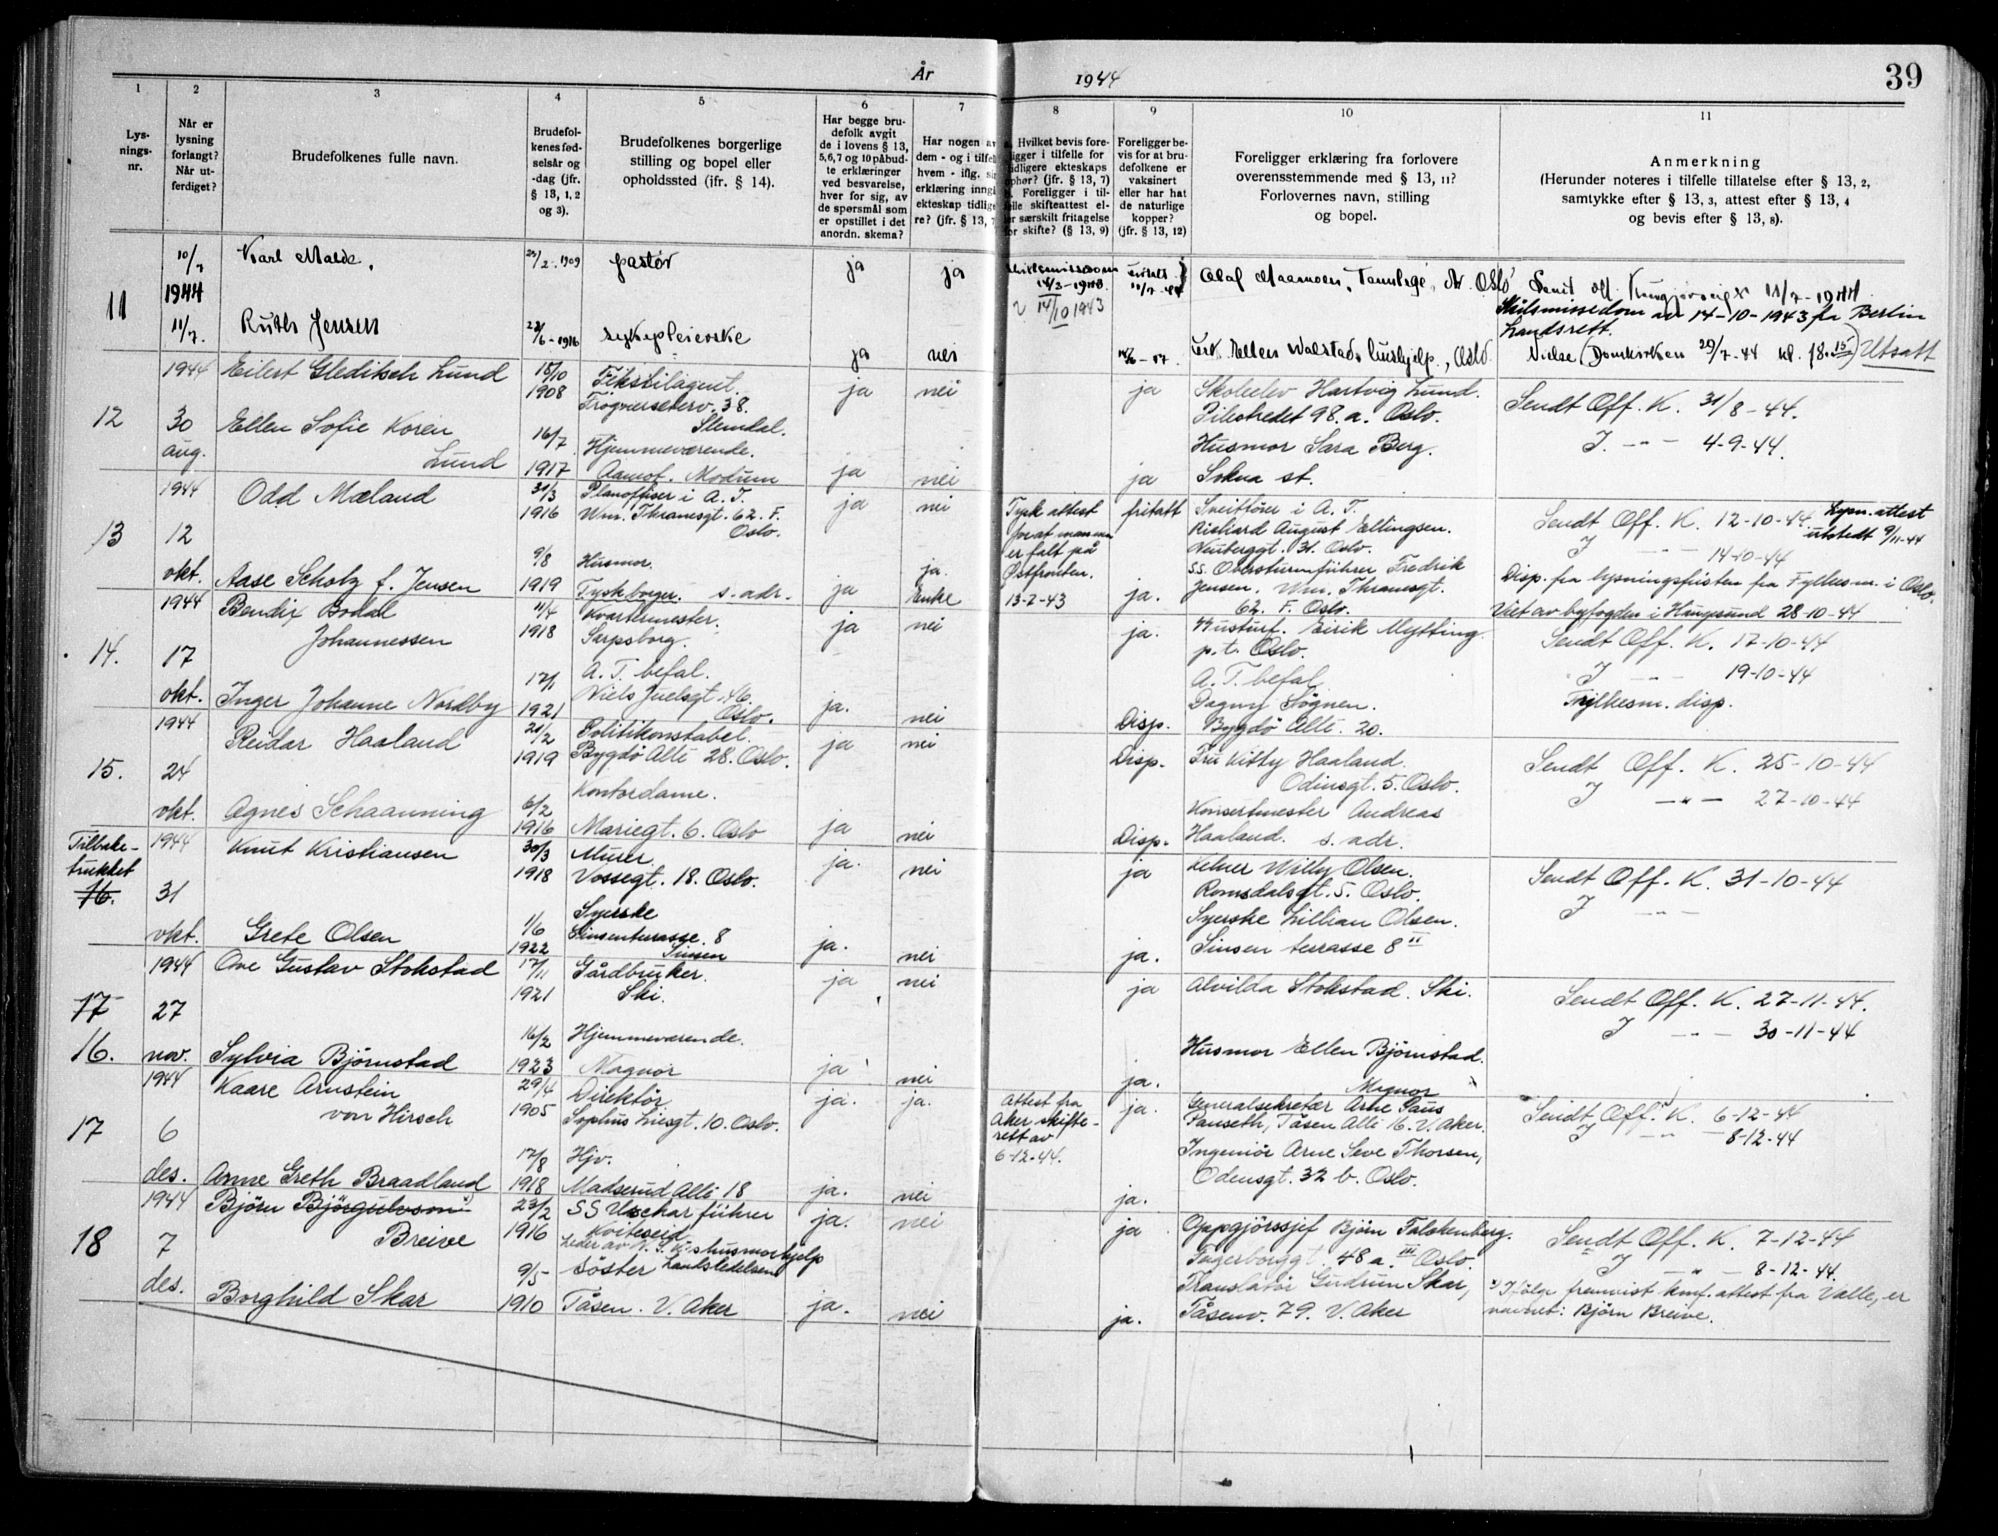 År 1944
39
1 2 3 4 5 6 7 8 9 10 11
Lys-
nings-
nr.
Når er
lysning
forlangt?
Når ut-
ferdiget?
Brudefolkenes fulle navn.
Brudefol-
kenes fød-
selsår og
-dag (jfr.
§ 13, 1, 2
og 3).
Brudefolkenes borgerlige
stilling og bopel eller
opholdssted (ifr. § 14).
Har begge bru-
defolk avgit
de i lovens § 13,
5,6,7 og 10 påbud-
te erklæringer
ved besvarelse,
hver for sig, av
de spørsmål som
er opstillet i det
anordn. skema?
Har nogen av
dem - og i tilfel
hvem - iflg. si
erklæring inngi
ekteskap tidlig
re? (jfr. § 13, 7
Hvilket bevis fore-
ligger i tilfelle for
tidligere ekteskaps
ophør? (jfr. § 13, 7)
Foreligger i til-
felle skifteattest el-
ler særskilt fritagelse
for skifte? (§ 13, 9)
Foreligger be-
vis for at bru-
defolkene er
vaksinert
eller har hat
de naturlige
kopper?
(jfr. § 13, 12)
Foreligger erklæring fra forlovere
overensstemmende med § 13, 11?
Forlovernes navn, stilling
og bopel.
Anmerkning
(Herunder noteres i tilfelle tillatelse efter § 13, 2,
samtykke efter § 13, 3, attest efter § 13, 4
og bevis efter § 13, 8).
11
10/7
1944
11/7.
Karl Malde.
2-1909
pastor
ja
ja
14/3-1943
14/10 1943
11/7-44
Olaf Aamoen, Tannlege, Oslo
Sendt off. Kungjøring 11/7-1944
Skilsmissedom av 14-10-1943 fra Berlin
Landsrett.
Ruth Jensen
6-1916
sykepleierske
ja
nei
Ellen Walstad, hushjelp, Oslo.
Vielse (Domkirken 29/7-44 kl. 18.15) Utsatt
12
30
aug.
1944
Eilert Gleditsch Lund
15/10
1908
Tekstilagent.
Frognerseterv. 38.
Slemdal.
ja
nei
ja
Skoleelev Hartvig Lund.
Pilestredet 98.a. Oslo.
Sendt Off. K. 31/8-44.
J. -"- 4-9-44.
Ellen Sofie Koren
Lund
16/7
1917
Hjemmeværende.
Aamot. Modum
ja
nei
ja
Husmor Sara Berg.
Sokna st.
13
12
okt.
1944
Odd Mæland
31/3
1916
Planoffiser i A.T.
Wm. Thranesgt. 62. F.
Oslo.
ja
nei
Tysk attest
for at mannen
er falt på
Østfronten.
13-2-43
fritatt
Sveitfører i A.T.
Rikhard August Ellingsen.
Neuberggt. 31. Oslo.
Sendt Off. K. 12-10-44.
J -"- 14-10-44
Lysn. attest
utstedt 9/11-44
Aase Scholz f. Jensen
9/8
1919
Husmor.
Tysk borger. s. adr.
ja
ja.
Enke
ja.
SS. Obersturmführer Fredrik
Jensen. Wm. Thranesgt.
62. F. Oslo.
Disp. fra lysningsfristen fra Fylkesm. i Oslo.
Viet av byfogden i Haugesund 28-10-44
14.
17
okt.
1944
Bendix Bodal
Johannessen
11/4
1918
Kvartermester.
Sarpsborg.
ja
nei
ja.
Hustuf. Eirik Mytting.
p.t. Oslo.
Sendt Off. K. 17-10-44
J -"- 19-10-44
Inger Johanne Nordby
17/1
1921
A.T. befal.
Niels Juelsgt. 46.
Oslo.
ja.
nei
Disp.
A.T. befal
Dagny Søgnen.
Bygdø Allé. 20.
Fylkesm. disp.
15.
24
okt.
1944
Reidar Haaland
21/2
1919
Politikonstabel.
Bygdø Allé 28. Oslo.
ja
nei
Disp.
Fru Kitty Haaland.
Odinsgt. 5. Oslo.
Sendt Off. K. 25-10-44
J -"- 27-10-44
Agnes Schaanning
6/2
1916
Kontordame.
Mariegt. 6. Oslo
ja
nei
Disp.
Konsertmester Andreas
Haaland. s. adr.
Tilbake-
trukket
16.
31
okt.
1944
Knut Kristiansen
30/3
1918
Murer.
Vossegt. 18. Oslo.
ja.
nei
ja
Kelner Willy Olsen.
Romsdalsgt. 5. Oslo.
Sendt Off. K. 31-10-44
J -"-
Grete Olsen
1/6
1922
Syerske
Sinsenterrasse. 8
Sinsen
ja.
nei
ja.
Syerske Lillian Olsen.
Sinsen terrasse 8 II
17
16.
27
nov.
1944
Ove Gustav Stokstad
17/11
1921
Gårdbruker.
Ski.
ja
nei
ja
Alvilda Stokstad. Ski.
Sendt Off. K. 27-11-44.
J -"- 30-11-44
Sylvia Bjørnstad
16/2
1923
Hjemmeværende.
Magnor
ja
nei
ja.
Husmor Ellen Bjørnstad.
Magnor
17
6
des.
1944
Kaare Arnstein
von Hirsch
29/4
1905
Direktør
Sophus Liesgt. 10. Oslo.
ja.
ja.
Attest fra
Aker skifte-
rett av
6-12-44.
ja.
Generalsekretær Arne Paus
Pauseth, Tåsen Allé 16. V. Aker.
Sendt Off. K. 6-12-44
J -"- 8-12-44
Anne Greth Braadland
17/8
1918
Hjv.
Madserud Allé 18
ja.
nei
ja.
Ingeniør Arne Seve Thorsen,
Odensgt. 32 b. Oslo.
18
7
des.
Bjørn Bjørgulvson
Breive
23/2
1916
SS Uscharführer
Kviteseid
ja.
nei
ja
Oppgjørssjef Bjørn Falckenberg.
Fagerborggt. 48 a. III Oslo.
Sendt Off. K. 7-12-44
J -"- 8-12-44.
Borghild Skar
9/5
1910
Leder av N.S.K's husmorhjelp
søster Landsledelsen
Tåsen. V. Aker
ja.
nei
ja.
Translatør Gudrun Skar,
Tåsenv. 79. V. Aker
x) Ifølge fremvist konf. attest fra Valle, er
navnet: Bjørn Breive.